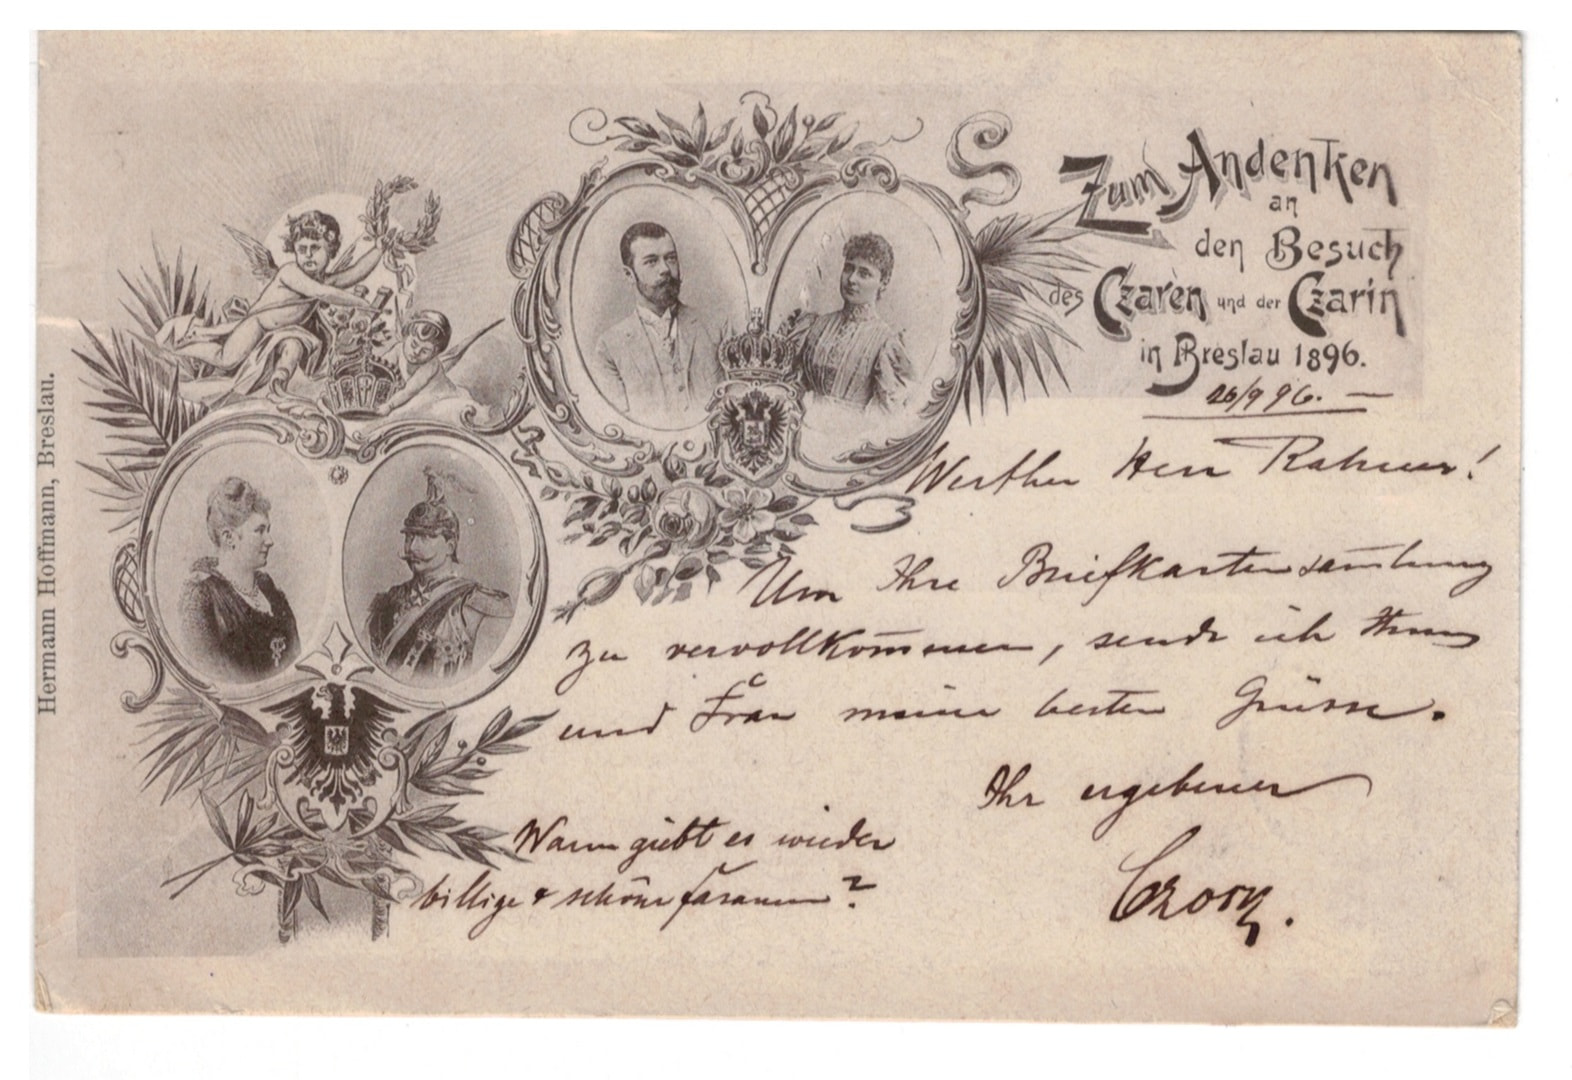 Zum Andenken
an
den Besuch
des Czaren und der Czarin
in Breslau 1896.
26/9 96. —
Werther Herr
Um Ihre Briefkartensam̄lung
zu vervollkom̄nen, sende ich Ihnen
und Frau meine besten Grüsse.
Ihr ergebener
Wann giebt es wieder
billige & schöne Fasanen?
Hermann Hoffmann, Breslau.